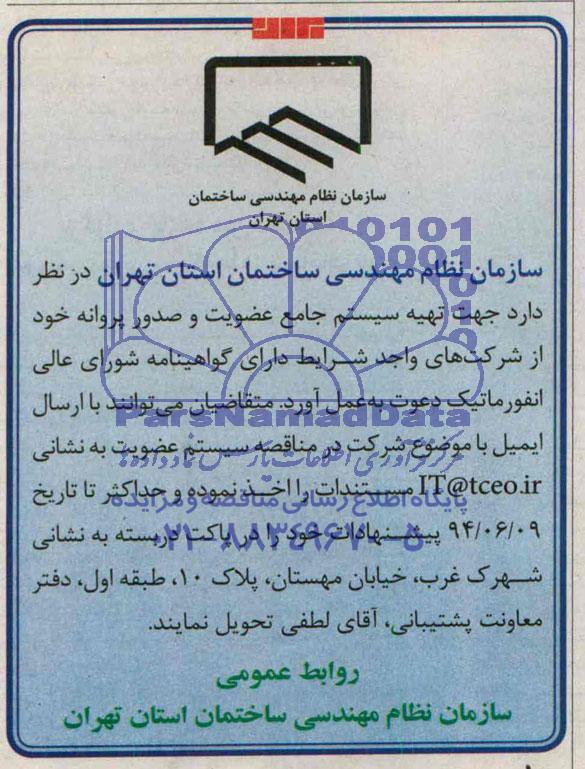 سازمان نظام مهندسی ساختمان
استان تهران
سازمان نظام مهندسی ساختمان استان تهران در نظر
دارد جهت تهیه سیستم جامع عضویت و صدور پروانه خود
از شرکت‌های واجد شرایط دارای گواهینامه شورای عالی
انفورماتیک دعوت به‌عمل آورد. متقاضیان می‌توانند با ارسال
ایمیل با موضوع شرکت در مناقصه سیستم عضویت به نشانی
IT@tceo.ir مستندات را اخذ نموده و حداکثر تا تاریخ
۹۴/۰۶/۰۹ پیشنهادات خود را در پاکت دربسته به نشانی
شهرک غرب، خیابان مهستان، پلاک ۱۰، طبقه اول، دفتر
معاونت پشتیبانی، آقای لطفی تحویل نمایند.
روابط عمومی
سازمان نظام مهندسی ساختمان استان تهران
ParsNamadData
مرکز فرآوری اطلاعات پارس نماد داده‌ها
پایگاه اطلاع رسانی مناقصه و مزایده
۰۲۱-۸۸۳۴۹۶۷۰-۵